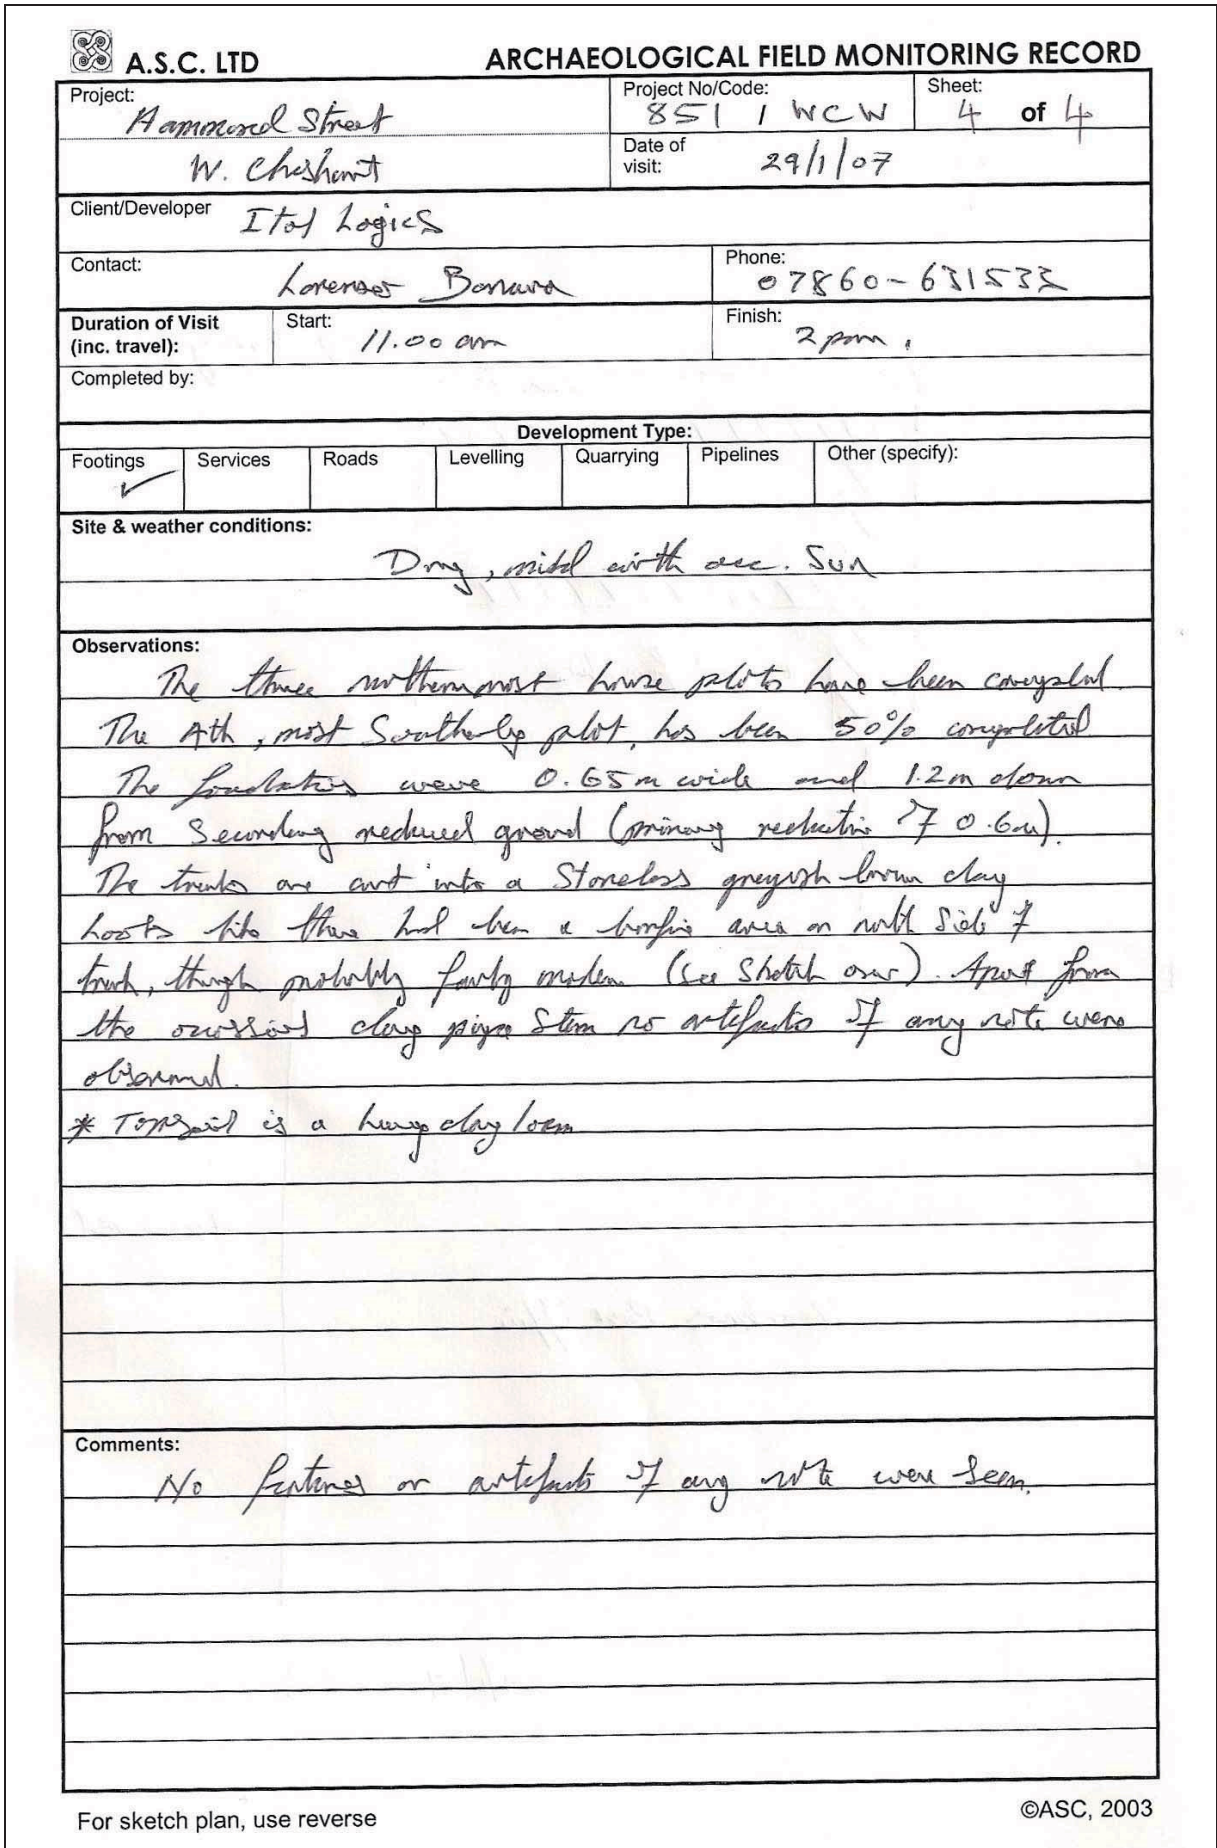 A.S.C. LTD
ARCHAEOLOGICAL FIELD MONITORING RECORD
Project:
Hammond Street
W. Cheshunt
Project No/Code:
851 / WCW
Sheet:
4 of 4
Date of visit:
29/1/07
Client/Developer
Ital Logics
Contact:
Phone:
07860-631533
Duration of Visit
(inc. travel):
Start:
11.00 am
Finish:
2pm.
Completed by:
Development Type:
Footings ✓ Services Roads Levelling Quarrying Pipelines Other (specify):
Site & weather conditions:
Dry, mild with occ. Sun
Observations:
The three northernmost house plots have been completed.
The 4th, most Southerly plot, has been 50% completed
The foundations were 0.65m wide and 1.2m down
from Secondary reduced ground (primary reduction of 0.6m).
The trenches are cut into a Stoneless greyish brown clay
Looks like there had been a bonfire area on north Side of
trench, though probably fairly modern (See Sketch over). Apart from
the occasional clay pipe Stem no artefacts of any note were
observed.
* Topsoil is a heavy clay loam
Comments:
No features or artefacts of any note were Seen.
For sketch plan, use reverse
©ASC, 2003